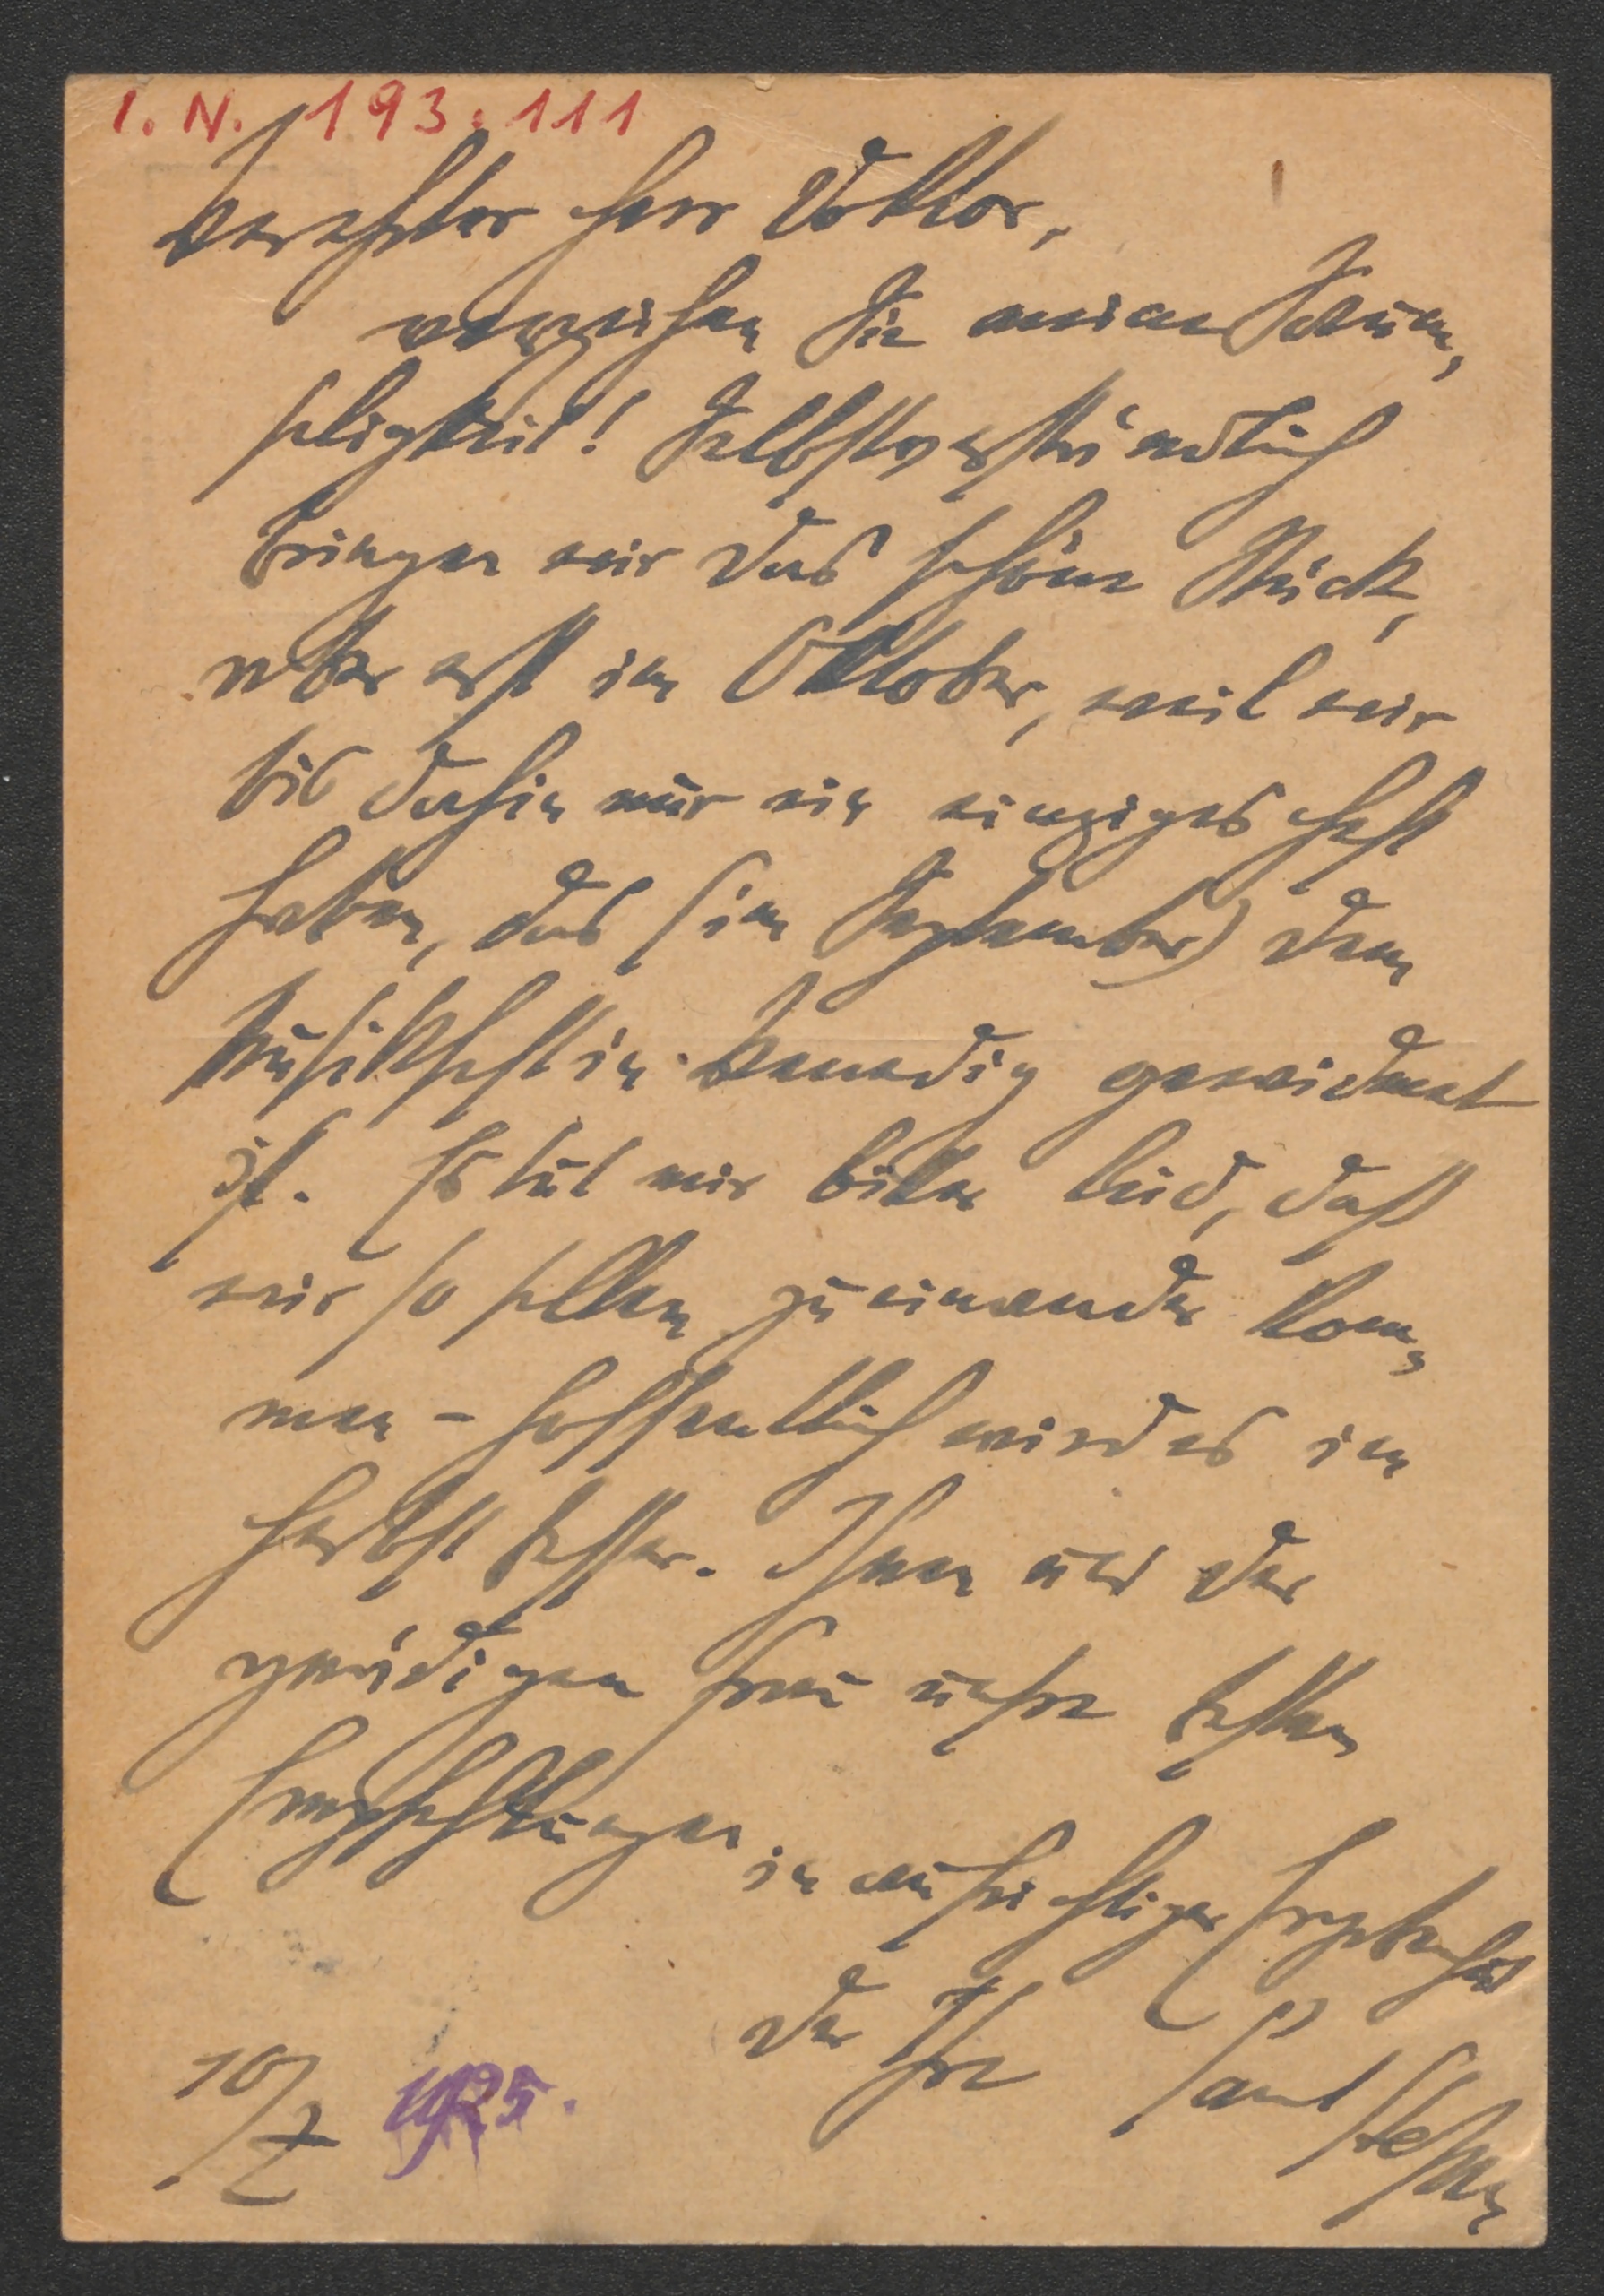 I. N. 193.111
Verehrter Herr Doktor,
verzeihen Sie meine Saum-
seligkeit! Selbstverständlich
bringen wir das schöne Stück,
aber erst im Oktober, weil wir
bis dahin nur ein einziges Heft
haben, das (im September) dem
Musikfest in Venedig gewidmet
ist. Es tut mir bitter leid, dass
wir so selten zueinander kom-
men – hoffentlich wird es im
Herbst besser. Ihnen und der
gnädigen Frau unsre besten
Empfehlungen.
in aufrichtiger Ergebenheit
der Ihre Paul Stefan
10/7 1925.